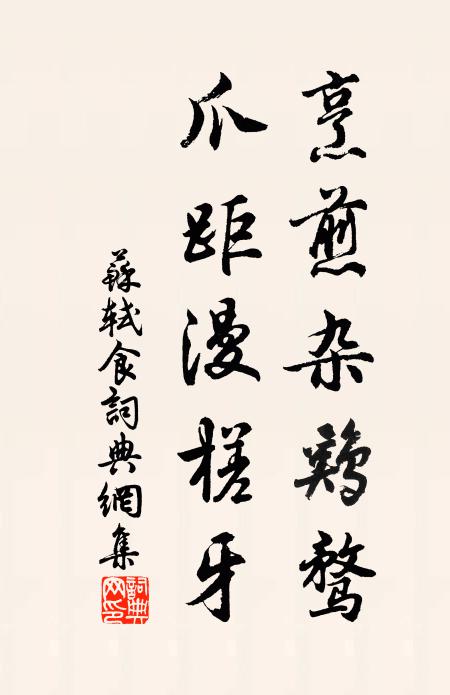 烹煎杂鷄鹜
爪距漫槎牙
蘇軾食詞典網集
詞典网印